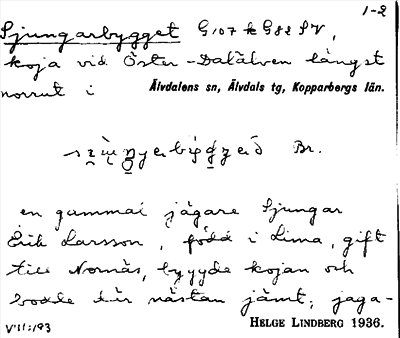 1-2
Sjungarbygget G 107 k G82 SV,
koja vid Öster-Dalälven längst
norrut i Älvdalens sn, Älvdals tg, Kopparbergs län.
Br.
en gammal jägare Sjungar
Erik Larsson, född i Lima, gift
till Nornäs, byggde kojan och
bodde där nästan jämt; jaga-
VIII:193 HELGE LINDBERG 1936.